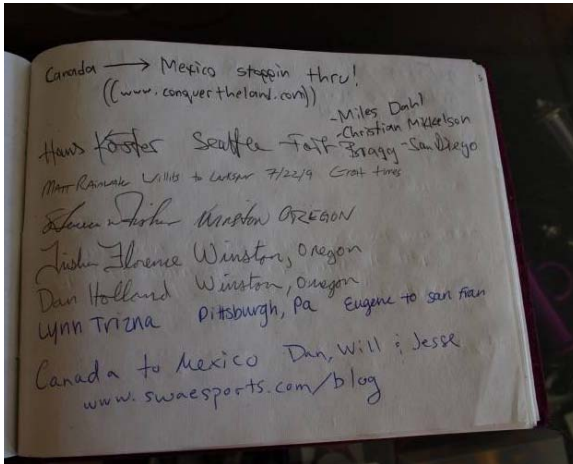 Canada → Mexico stoppin thru!
((www.conquertheland.com))
-Miles Dahl
-Christian Mikkelson
Hans Seattle - Fort Bragg - San Diego
Matt Rainwater Willits to 7/22/9 Great times
Winston OREGON
Florence Winston, Oregon
Dan Holland Winston, Oregon
Lynn Trizna Pittsburgh, Pa Eugene to san fran
Canada to Mexico Dan, Will & Jesse
www.swaesports.com/blog